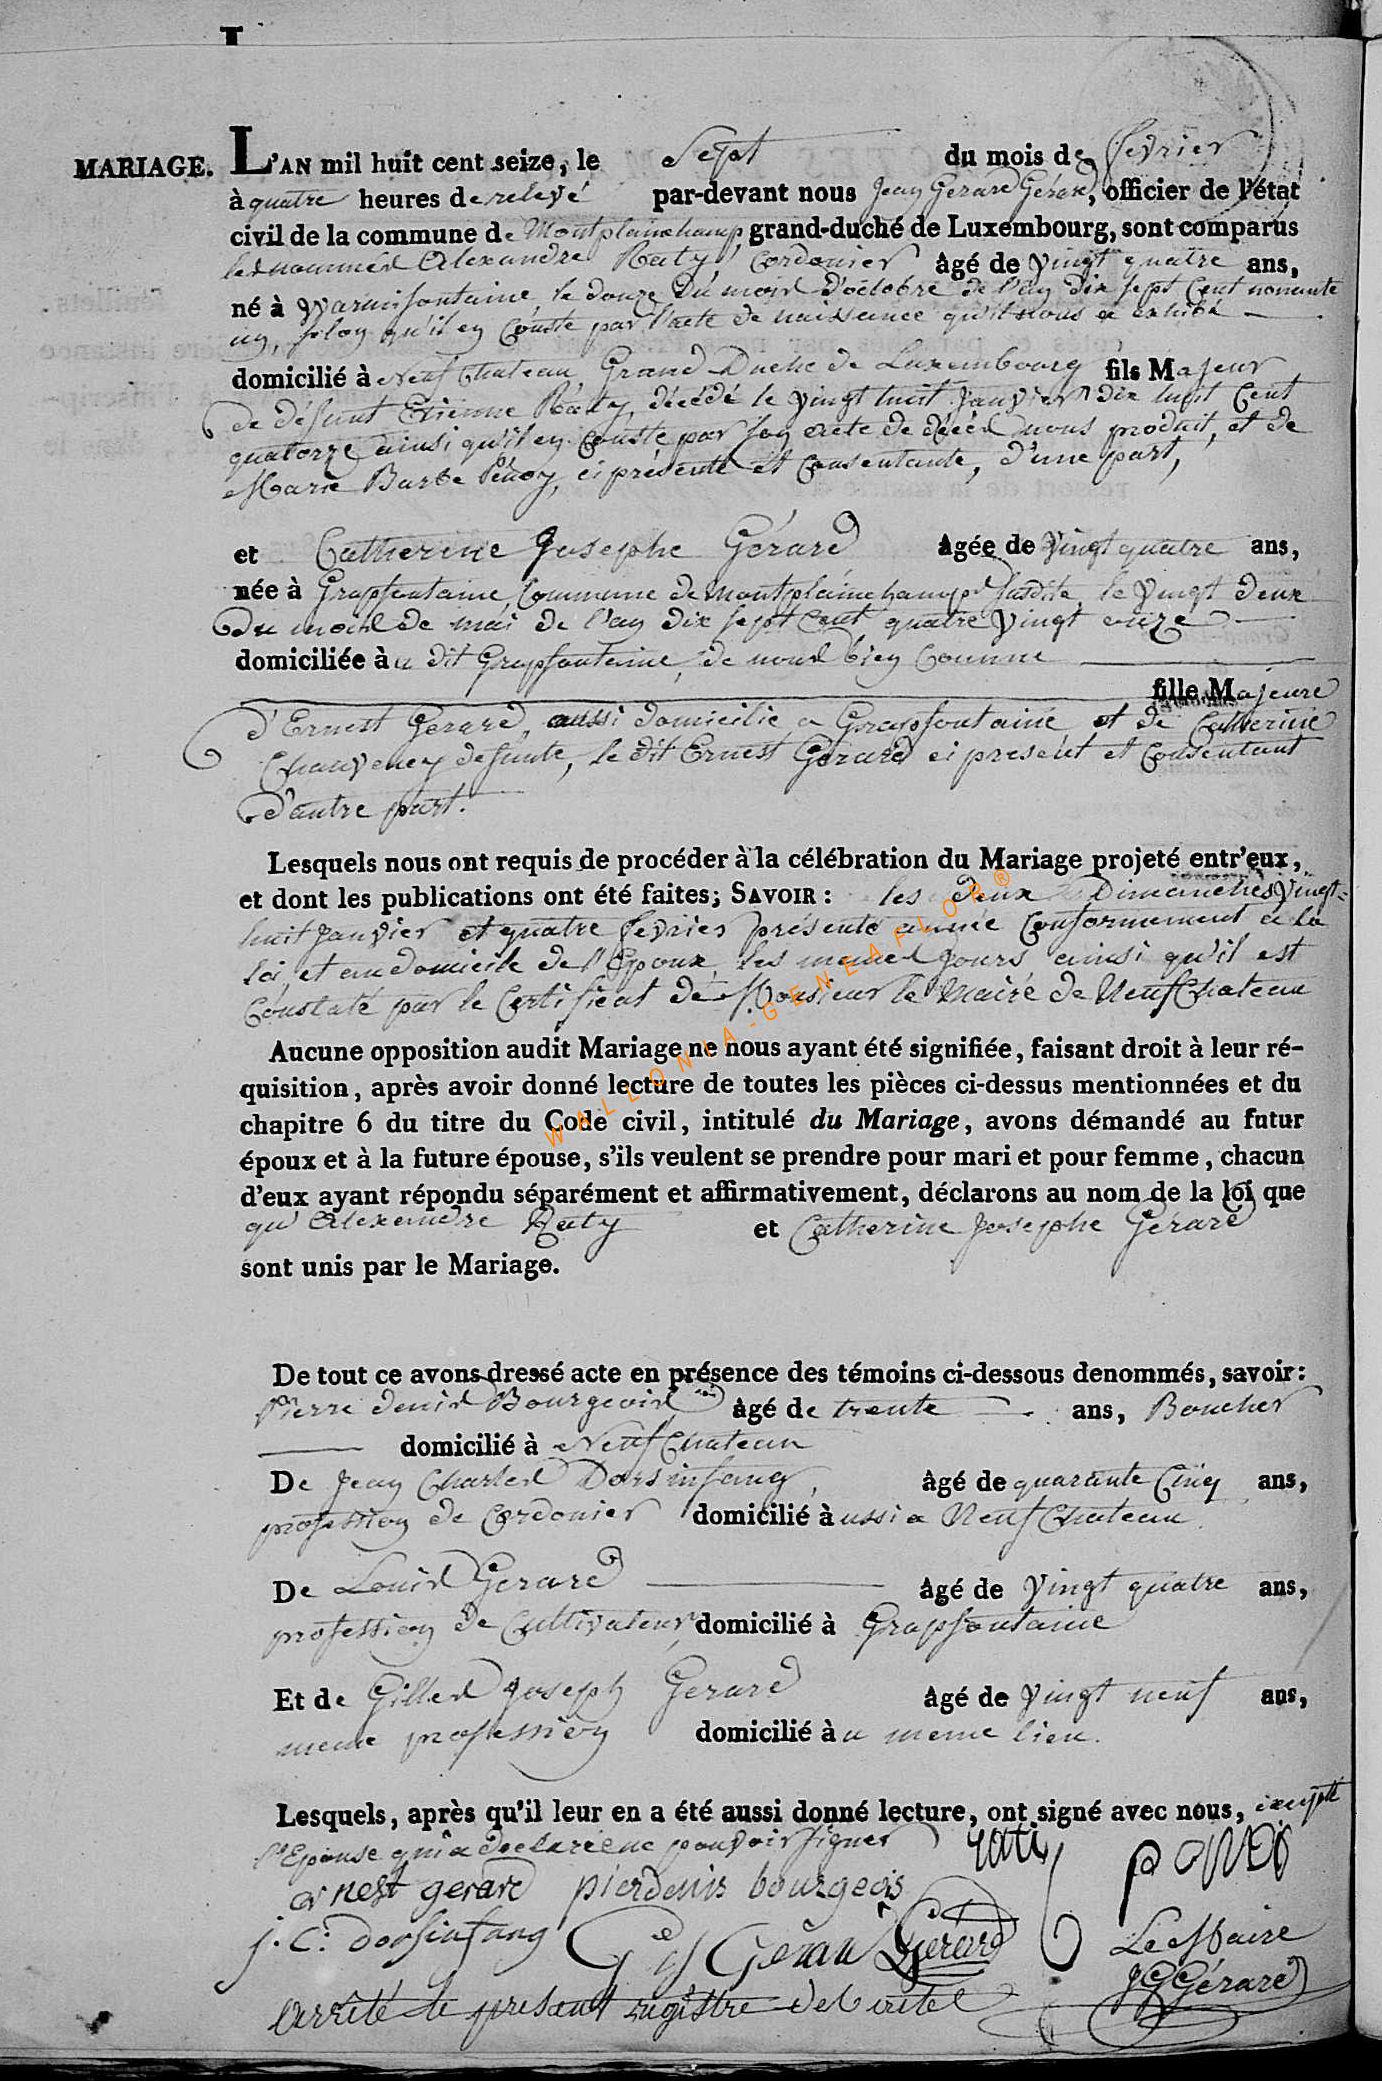 MARIAGE. L'AN mil huit cent seize, le Sept du mois de fevrier
à quatre heures de relevé par-devant nous Jean Gerard Gérard, officier de l'état
civil de la commune de Montplainchamp, grand-duché de Luxembourg, sont comparus
les nommés Alexandre Raty, Cordonier âgé de vingt quatre ans,
né à Warmifontaine, le douze du mois d'octobre de l'an dix sept Cent nonante
un, selon qu'il en Conste par l'acte de naissance qu'il nous a exhibé
domicilié à Neufchateau, Grand Duché de Luxembourg fils Majeur
de défunt Etienne Raty, décédé le vingt huit Janvier dix huit Cent
quatorze ainsi qu'il en Conste par son acte de décès nous produit, et de
Marie Barbe , ci présente et Consentante, d'une part,
et Catherine Josephe Gérard Agée de vingt quatre ans,
née à Grapfontaine Commune de Montplainchamp susdite, le vingt deux
du mois de mai de l'an dix sept Cent quatre vingt onze
domiciliée à u dit Grapfontaine, de nous bien Connue
fille Majeure
d'Ernest Gerard, aussi domicilié a Grapfontaine, et de Catherine
Chauveney defunte, le dit Ernest Gérard ci present et Consentant
d'autre part.
Lesquels nous ont requis de procéder à la célébration du Mariage projeté entr'eux,
et dont les publications ont été faites; SAVOIR: les deux Dimanches vingt-
huit Janvier et quatre fevrier présente année Conformement a la
loi, et au domicile de l'Epoux, les memes Jours ainsi qu'il est
Constaté par le Certificat de Monsieur le Maire de Neufchateau
Aucune opposition audit Mariage ne nous ayant été signifiée, faisant droit à leur ré-
quisition, après avoir donné lecture de toutes les pièces ci-dessus mentionnées et du
chapitre 6 du titre du Code civil, intitulé du Mariage, avons démandé au futur
époux et à la future épouse, s'ils veulent se prendre pour mari et pour femme, chacun
d'eux ayant répondu séparément et affirmativement, déclarons au nom de la loi que
qu'Alexandre Raty et Catherine Josephe Gérard
sont unis par le Mariage.
WALLONIA-GENEAFLOR®
De tout ce avons dressé acte en présence des témoins ci-dessous denommés, savoir:
Pierre Denis Bourgeois âgé de trente ans, Boucher
domicilié à Neufchateau
De Jean Charles Dorsinfang, âgé de quarante Cinq ans,
profession de Cordonier domicilié à ussi a Neufchateau
De Louis Gerard âgé de vingt quatre ans,
profession de Cultivateur, domicilié à Grapfontaine
Et de Gilles Joseph Gerard âgé de vingt neuf ans,
meme profession domicilié à u meme lieu.
Lesquels, après qu'il leur en a été aussi donné lecture, ont signé avec nous, excepté
l'Epouse qui a declaré ne pouvoir signer rati
arnest gerard pierdenis bourgeois
j. c: dorsinfang G J Gérard L Gerard Le Maire
JG Gérard
Arrêté le present registre